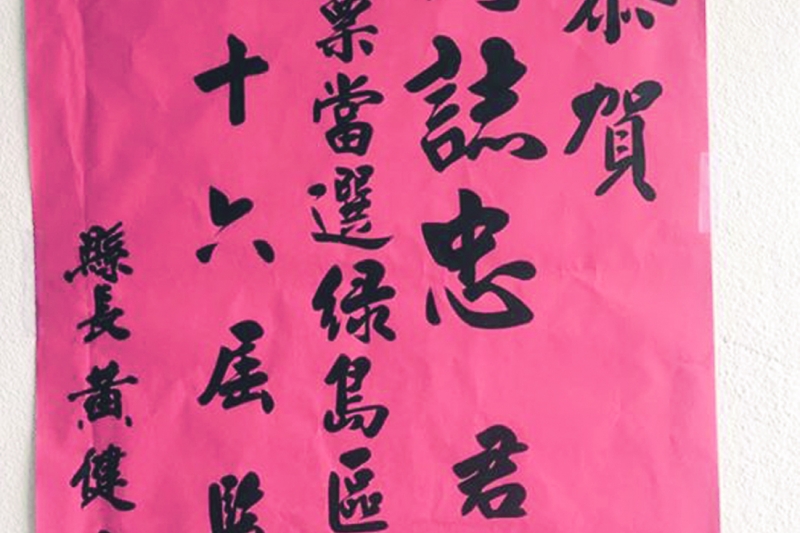 恭賀
誌忠君
票當選綠島區
十六屆監
縣長黃健